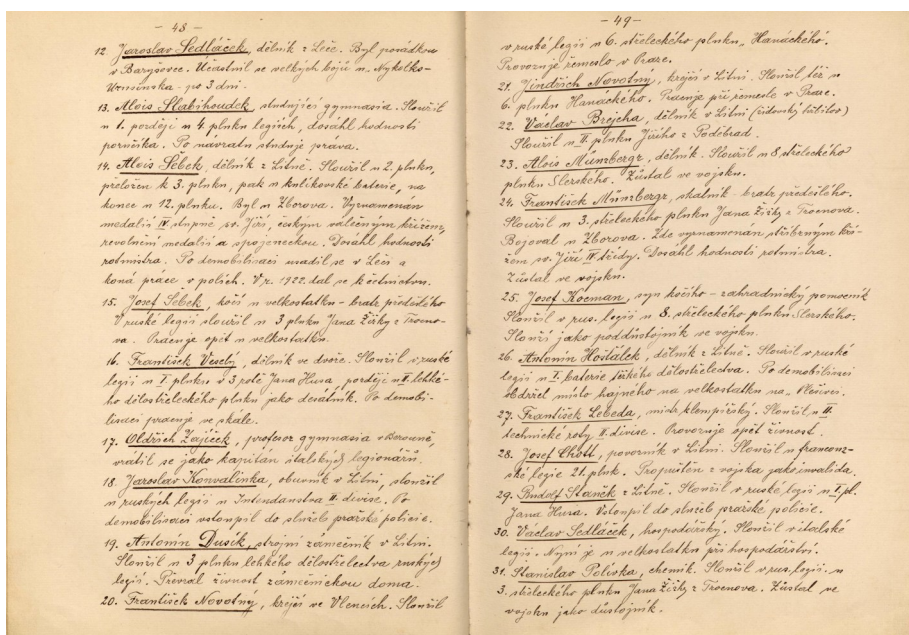 - 48 -
12. Jaroslav Sedláček, dělník z Leče. Byl pořádkou
v Baryševce. Účastnil se velkých bojů u Nykolks-
- po 3 dni.
13. Alois Slabihoudek, studující gymnasia. Sloužil
u 1. později u 4. pluku legiích, dosáhl hodnosti
poručíka. Po návratu studuje práva.
14. Alois Šebek, dělník z Litně. Sloužil u 2. pluku,
přeložen k 3. pluku, pak u kulikovské baterie, na
konec u 12. pluku. Byl u Zborova. Vyznamenán
medalií IV stupně sv. Jiří, českým válečným křížem,
revoluční medalií a spojeneckou. Dosáhl hodnosti
rotmistra. Po demobilisaci usadil se v Leči a
koná práce v polích. V r. 1922 dal se k četnictvu.
15. Josef Šebek, kočí u velkostatku - bratr předešlého
V ruské legii sloužil u 3 pluku Jana Žižky z Trocno-
va. Pracuje opět u velkostatku.
16. František Veselý, dělník ve dvoře. Sloužil v ruské
legii u I. pluku v 3 rotě Jana Husa, později u II. lehké-
ho dělostřeleckého pluku jako desátník. Po demobi-
lisaci pracuje ve skále.
17. Oldřich Zajíček, profesor gymnasia v Berouně,
vrátil se jako kapitán italských legionářů.
18. Jaroslav Konvalinka, obuvník v Litni, sloužil
u ruských legií u Intendanstva II. divise. Po
demobilisaci vstoupil do služeb pražské policie.
19. Antonín Dusík, strojní zámečník v Litni.
Sloužil u 3 pluku lehkého dělostřelectva ruských
legií. Převzal živnost zámečnickou doma.
20. František Novotný, krejčí ve Vlencích. Sloužil
- 49 -
v ruské legii u 6. střeleckého pluku „Hanáckého".
Provozuje řemeslo v Praze.
21. Jindřich Novotný, krejčí v Litni. Sloužil též u
6. pluku Hanáckého. Pracuje při řemesle v Praze.
22. Václav Brejcha, dělník v Litni (židovský)
Sloužil u II. pluku Jiřího z Poděbrad.
23. Alois Münzbergr, dělník. Sloužil u 8 střeleckého
pluku Slezského. Zůstal ve vojsku.
24. František Münzbergr, skalník - bratr předešlého.
Sloužil u 3. střeleckého pluku Jana Žižky z Trocnova.
Bojoval u Zborova. Zde vyznamenán stříbrným kří-
žem sv. Jiří IV třídy. Dosáhl hodnosti rotmistra.
Zůstal ve vojsku.
25. Josef Kocman, syn kočího - zahradnický pomocník
Sloužil v rus. legii u 8. střeleckého pluku Slezského.
Slouží jako poddůstojník ve vojsku.
26. Antonín Hošťálek, dělník z Litně. Sloužil v ruské
legii u I. baterie těžkého dělostřelectva. Po demobilisaci
obdržel místo hajného na velkostatku na „Plešivci.
27. František Lebeda, mistr klempířský. Sloužil u II.
technické roty II. divise. Provozuje opět živnost.
28. Josef Chott, povozník v Litni. Sloužil u francouz-
ské legie 21. pluk. Propuštěn z vojska jako invalida.
29. Rudolf Staněk z Litně. Sloužil v ruské legii u I. pl.
Jana Husa. Vstoupil do služeb pražské policie.
30. Václav Sedláček, hospodářský. Sloužil v italské
legii. Nyní je u velkostatku při hospodářství.
31. Stanislav Polívka, chemik. Sloužil v rus. legii u
3. střeleckého pluku Jana Žižky z Trocnova. Zůstal ve
vojsku jako důstojník.